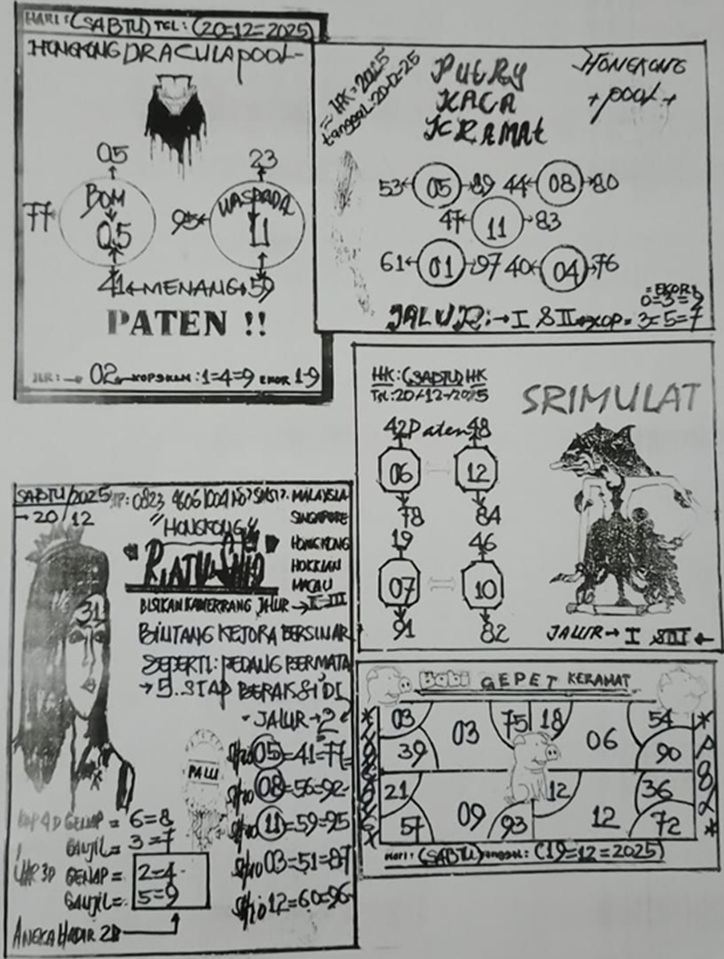 HARI : (SABTU) TGL : (20=12=2025)
HONGKONG DRACULA POOL-
05
23
BOM
WASPADA
77
05
95
11
41 MENANG 59
PATEN !!
02 1=4=9 EKOR 1-9
= HK = 2025
tanggal = 20=12=25
PUTRY
KACA
KRAMAT
HONGKONG
+ POOL +
53 05 89 44 08 80
47 11 83
61 01 97 40 04 76
= EKOR
0=3=9
JALUR : → I & II KOP = 3=5=7
HK : (SABTU) HK
TGL : 20-12-2025
SRIMULAT
42 Paten 48
06 12
78 84
19 46
07 10
91 82
JALUR → I & III
SABTU/2025 HP : 0823 MALAYSIA
→ 20/12
SINGAPORE
"HONGKONG"
HONGKONG
HOKKIAN
MACAU
BISIKAN JALUR → I-III
31
BINTANG KEJORA BERSINAR
SEPERTI : PEDANG PERMATA
→ 5.. SIAP BERAKSI DI
- JALUR → 2
PALU
Shio 05 = 41 = 77
Shio 08 = 56 = 92
Shio 11 = 59 = 95
Shio 03 = 51 = 87
Shio 12 = 60 = 96
KOP 4D GENAP = 6=8
GANJIL = 3=7
3D GENAP = 2=4
GANJIL = 5=9
ANGKA HADIR 2D
Babi GEPET KERAMAT
03 03 75 18 06 54
39 90
21 09 12 12 36
57 93 72
HARI : (SABTU) tanggal : (19=12=2025)